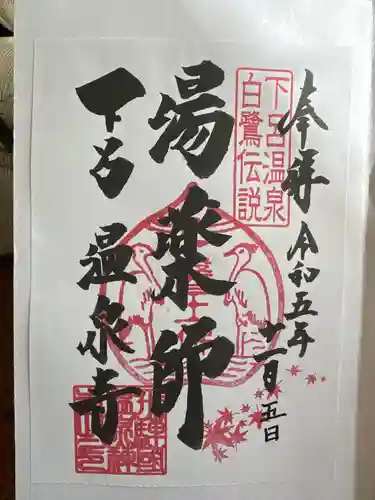 奉拝
令和五年
十一月五日
下呂温泉
白鷺伝説
湯薬師
下呂
温泉寺